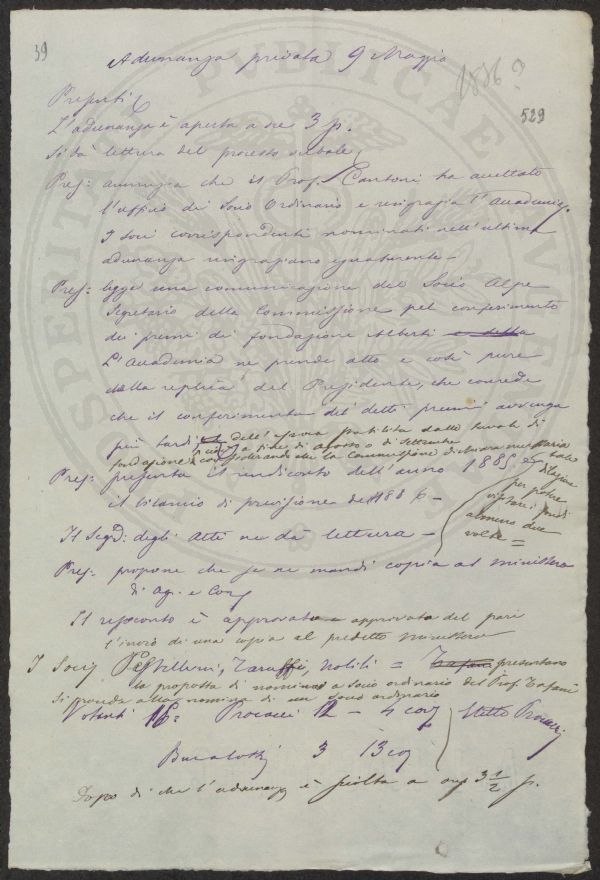 39
Adunanza privata 9 Maggio
1886?
529
Presenti
L'adunanza è aperta a ore 3 p.
Si dà lettura del processo verbale
Pres: annunzia che il Prof. Cantoni ha accettato
l'ufficio di Socio Ordinario e ringrazia l'Accademia.
I soci corrispondenti nominati nell'ultima
adunanza ringraziano egualmente -
Pres: legge una comunicazione del Socio Alpe
Segretario della Commissione pel conferimento
dei premi di fondazione Alberti
L'Accademia ne prende atto e così pure
della replica del Presidente, che concede
che il conferimento dei detti premi avvenga
più tardi dell'epoca stabilita dalle tavole di
fondazione fine di agosto o di Settembre
considerando che la Commissione dichiara necessaria tale
dilazione
per potere
visitare i poderi
almeno due
volte =
Pres: presenta il rendiconto dell'anno 1885 e
il bilancio di previsione del 1886 -
Il Segr: degli Atti ne dà lettura -
Pres: propone che se ne mandi copia al ministero
di Ag. e Com
Il resoconto è approvato approvata del pari
l'invio di una copia al predetto ministero
I Socj Pestellini, Taruffi, Nobili = presentano
la proposta di nomina a socio ordinario del Prof. Tafani
Si procede alla nomina di un socio ordinario
Votanti 16: Procacci 12 - 4 con
Eletto Procacci
3 13 con
Dopo di che l'adunanza è sciolta a ore 3 1/2 p.